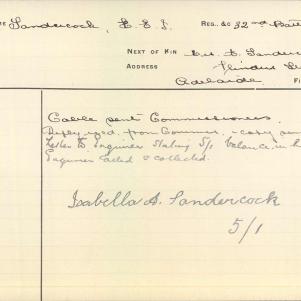 ME Sandercock, L. E. J. REG., &C 32nd Batt
NEXT OF KIN Mr. L. Sander
ADDRESS Flinders
Adelaide. FI
Cable sent Commissioners.
Reply recd. from Commrs. - copy sen
Letter to Enquirer stating 5/1 balance in h
Enquirer called & collected.
Isabella A. Sandercock
5/1